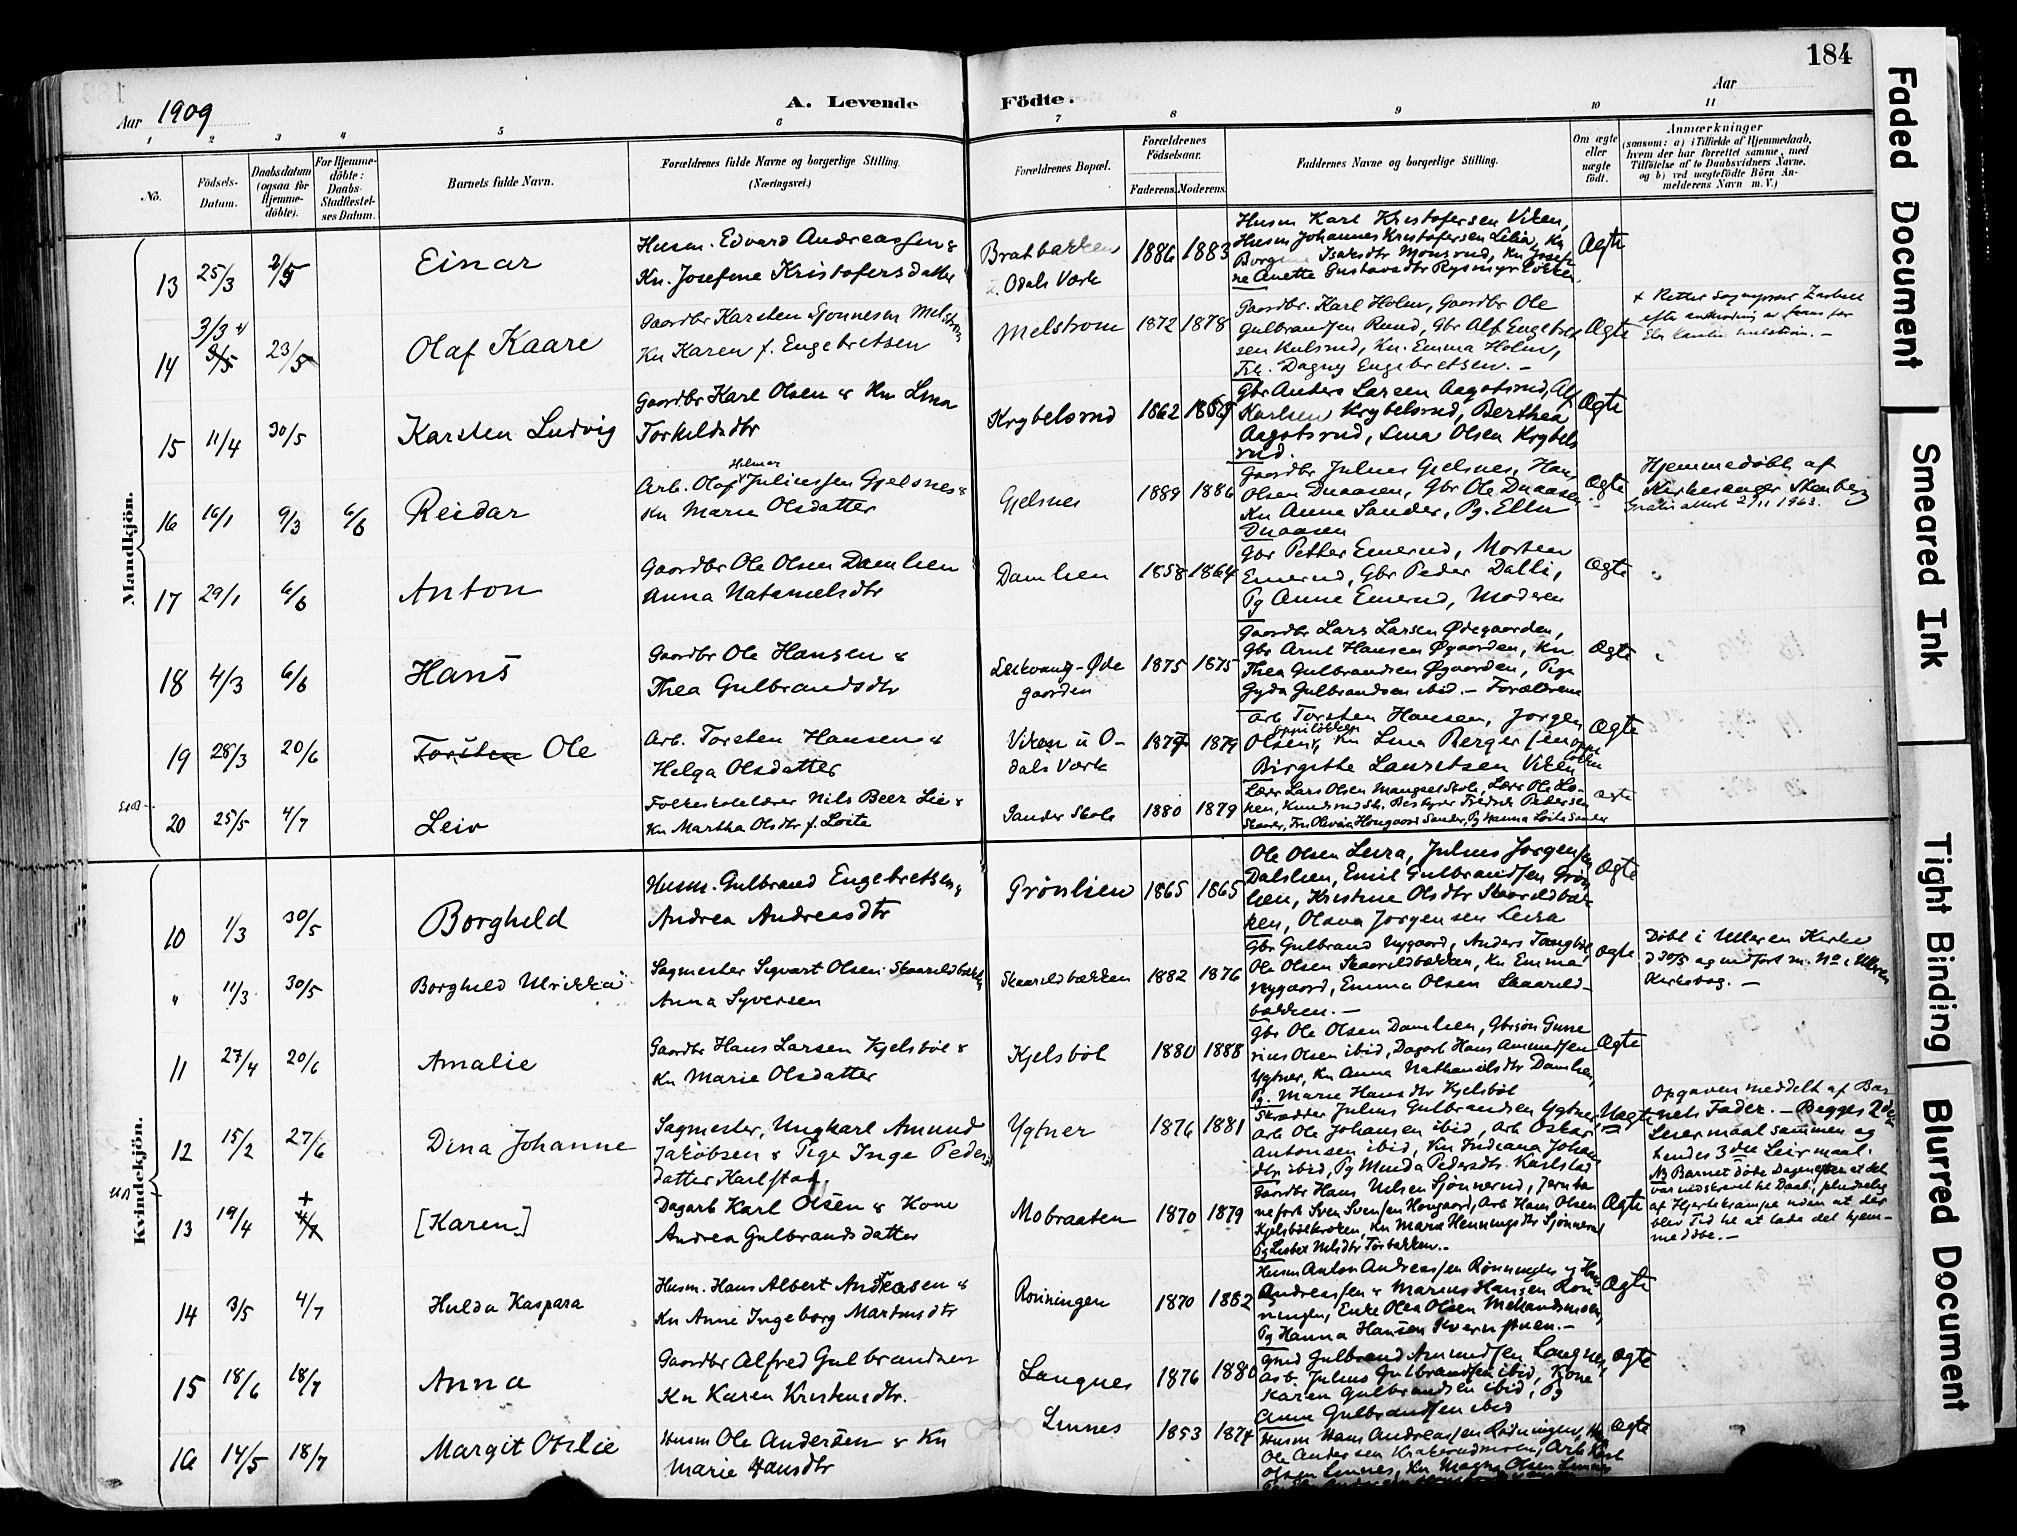 184
Aar 1909
A. Levende Födte.
Aar
1 2 3 4 5 6 7 8 9 10 11
No.
Födsels-Datum.
Daabsdatum (ogsaa for Hjemme-döbte).
For Hjemme-döbte: Daabs-Stadfæstel-ses Datum.
Barnets fulde Navn.
Forældrenes fulde Navne og borgerlige Stilling. (Næringsvei.)
Forældrenes Bopæl.
Forældrenes Födselsaar.
Faderens. Moderens.
Faddernes Navne og borgerlige Stilling.
Om ægte eller uægte födt.
Anmærkninger
(saasom: a) i Tilfælde af Hjemmedaab, hvem der har forrettet samme, med Tilföielse af to Daabsvidners Navne, og b) ved uægtefödte Börn An-melderens Navn m. V.)
Mandkjön.
13 25/3 2/5 Einar
Husm. Edvard Andreassen &
Kn. Josefine Kristofersdatter
Bratbakken
Odals Værk
1886 1883
Husm Karl Kristofersen Viken,
Husm Johannes Kristofersen Lilia, Kn
Ægte
14 3/3 23/5 Olaf Kaare
Gaardbr Karsten
Kn Karen f. Engebretsen
Melstrom
1872 1878
Gaardbr. Karl Holm, Gaardbr Ole
Gulbrandsen Rund, Gbr Alf Engebret
sen Kulsrud, Kn. Emma Holm,
Frk. Dagny Engebretsen. -
Ægte
15 11/4 30/5 Karsten Ludvig
Gaardbr Karl Olsen & Kn Lina
Torkildsdtr
Krybelsrud
1862
Gbr Anders Larsen Aagotsrud, Alf
Karlsen Krybelsrud, Berthea
Aagotsrud, Lina Olsen Krybels
rud.
Ægte
16 16/1 9/3 6/6 Reidar
Hilmar
Arb. Olaf Juliussen Gjelsnes &
Kn Marie Olsdatter
Gjelsnes
1889 1886
Gaardbr Julius Gjelsnes, Hans
Olsen Duaasen, Gbr Ole Duaasen
Kn Anne Sander, Pg. Ellen
Duaasen
Ægte
Hjemmedøbt af
Kirkesanger Stenberg
2/11 1963.
17 29/1 6/6 Anton
Gaardbr Ole Olsen Damlien
Anna Natanielsdtr
Damlien
1858 1864
Gbr Petter Emerud, Morten
Emerud, Gbr Peder Dalbi,
Pg Anne Emerud, Moderen
Ægte
18 4/3 6/6 Hans
Gaardbr Ole Hansen &
Thea Gulbrandsdtr
gaarden
1875 1875
Gaardbr Lars Larsen Ødegaarden,
Gbr Arne Hansen Øgaarden, Kn
Thea Gulbrandsen Øgaarden, Pige
Gyda Gulbrandsen ibid. - Forældrene
Ægte
19 28/3 20/6 Torsten Ole
Arb. Torsten Hansen &
Helga Olsdatter
Viken i O-
dals Værk
1879
Arb Torsten Hansen, Jørgen
Olsen, Kn Lina Bergersen
Birgithe Lauritsen Viken
Ægte
20 25/5 4/7 Leiv
Folkeskolelærer Nils Beer Lie &
Kn Martha Olsdtr f. Løite
Sander Skole
1880 1879
ægte
Kvindekjön.
10 1/3 30/5 Borghild
Husm. Gulbrand Engebretsen &
Andrea Andreasdtr
Grönlien
1865 1865
Ole Olsen Leira, Julius Jørgensen
Dalslien, Emil Gulbrandsen Grøn
lien, Kristine Olsdtr Skaarildbæk
ken, Olava Jørgensen Leira
Ægte
" 11/3 30/5 Borghild Ulrikka
Sagmester Sigvart Olsen Skaarildbækken
Anna Syversen
Skaarildbækken
1882 1876
Gbr Gulbrand Nygaard, Anders
Ole Olsen Skaarildbækken, Kn Emma
Nygaard, Emma Olsen Skaarild-
bækken. -
ægte
Døbt i Ulleren Kirke
d 30/5 og indført m. No i Ulleren
Kirkebog. -
11 27/4 20/6 Amalie
Gaardbr Hans Larsen Kjelsböl &
Kn Marie Olsdatter
Kjelsböl
1880 1888
Gbr Ole Olsen Damlien, Gbrsøn Gune
rius Olsen ibid, Dagarb Hans Amundsen
Ygtner, Kn Anna Nathanielsdtr Damlien,
Pg. Marie Hansdtr Kjelsböl
Ægte
12 15/2 27/6 Dina Johanne
Sagmester, Ungkarl Amund
Jakobsen & Pige Inge Peders
datter Karlstad.
Ygtner
1876 1881
Skrædder Julius Gulbrandsen Ygtner
Arb Ole Johansen ibid, Arb Oskar
Antonsen ibid, Kn Indiana Johan
dtr ibid, Pg Minda Pedersdtr. Karlstad
Uægte
Opgaven meddelt af Bar
nets Fader. - Begges 2det
Leiermaal sammen og
hendes 3die Leirmaal.
13 19/4 + 4/7 [Karen]
Dagarb Karl Olsen & Kone
Andrea Gulbrandsdatter
Mobraaten
1870 1879
Gaardbr Hans Nilsen Sjønnerud, Jernba
Ægte
NB Barnet døde Dagen efter at det
var indskrevet til Daab, pludselig
af Hjertekrampe uden at der
blev Tid til at lade det hjem-
medøbe. -
14 3/5 4/7 Hulda Kaspara
Husm. Hans Albert Andreasen &
Kn Anne Ingeborg Martinsdtr
Rønningen
1870 1882
Husm Anton Andreassen Rønningen og Hans
Andreassen & Marius Hansen Røn
ningen, Enke Olea Olsen
Pg Hanna Hansen
Ægte
15 18/6 18/7 Anna
Gaardbr Alfred Gulbrandsen
Kn Karen Kristensdtr.
Langnes
1876 1880
Gulbrand Amundsen Langnes,
Arb. Julius Gulbrandsen ibid, Kone
Karen Gulbrandsen ibid, Pg
Anne Gulbrandsen ibid
ægte
16 14/5 18/7 Margit Otilie
Husm Ole Andersen & Kn
Marie Hansdtr
Linnes
1853 1874
Husm Hans Andreassen Rønningen,
Olsen Linnes, Kn Magna Olsen Linnes
Ægte
Faded Document
Smeared Ink
Tight Binding
Blurred Document